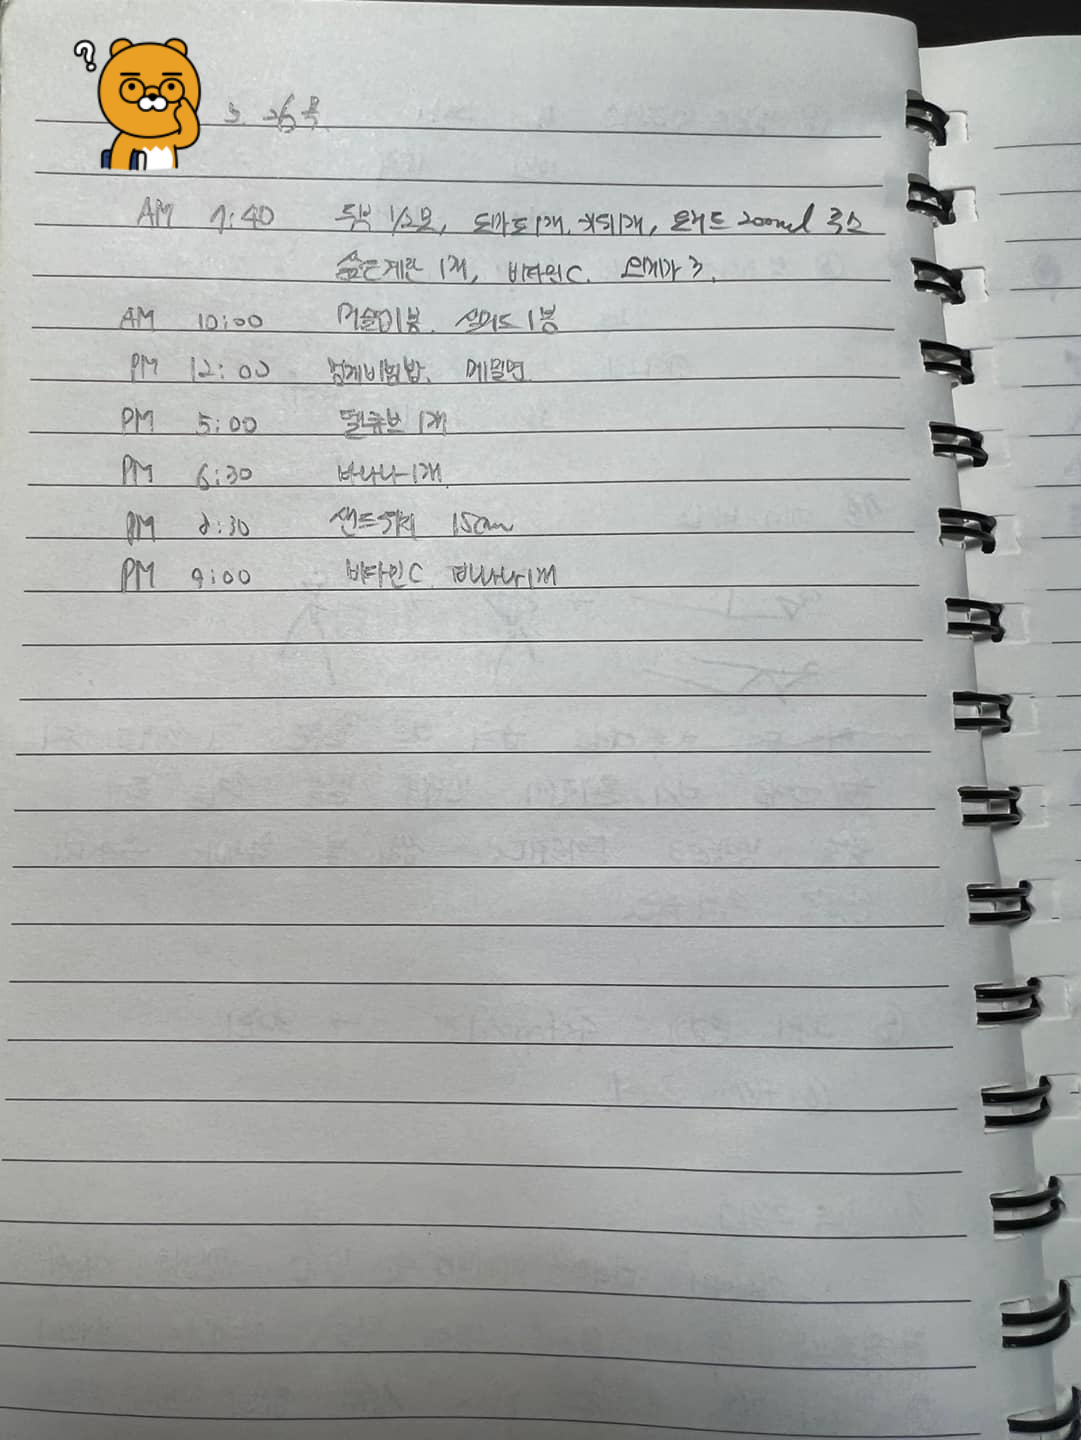 ?
3. 26 목
AM 7:40 두부 1/2모, 토마토 1개, 키위 1개, 오트 200ml 주스
삶은계란 1개, 비타민C. 오메가 3.
AM 10:00 1봉
PM 12:00 비빔밥. 메밀면
PM 5:00 1개
PM 6:30 바나나 1개
PM 8:30 샌드위치 15cm
PM 9:00 비타민C 바나나 1개